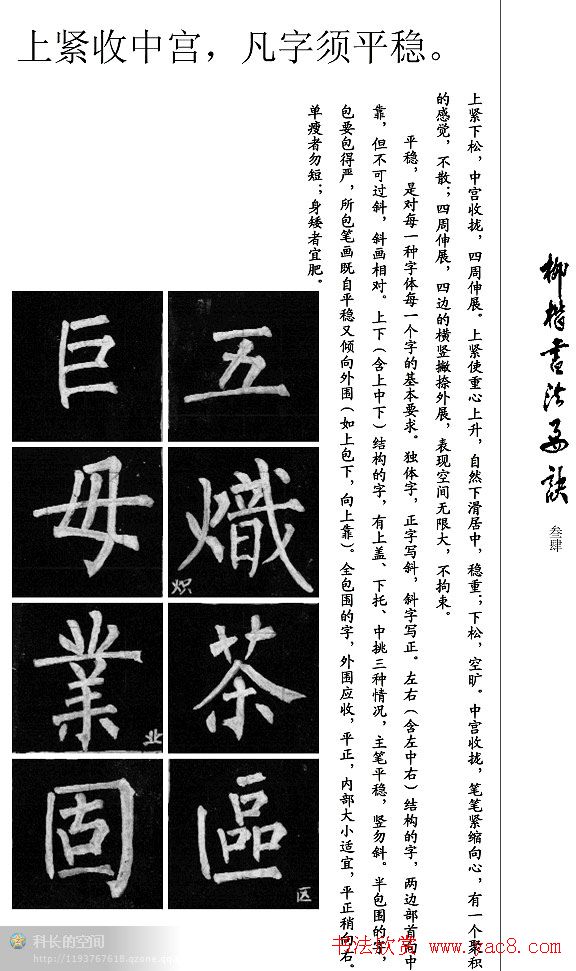 上紧收中宫，凡字须平稳。
柳楷書法要訣
叁肆
上紧下松，中宫收拢，四周伸展。上紧使重心上升，自然下滑居中，稳重；下松，空旷。中宫收拢，笔笔紧缩向心，有一个聚积
的感觉，不散；四周伸展，四边的横竖撇捺外展，表现空间无限大，不拘束。
平稳，是对每一种字体每一个字的基本要求。独体字，正字写斜，斜字写正。左右（含左中右）结构的字，两边部首向中
靠，但不可过斜，斜画相对。上下（含上中下）结构的字，有上盖、下托、中挑三种情况，主笔平稳，竖勿斜。半包围的字，
包要包得严，所包笔画既自平稳又倾向外围（如上包下，向上靠）。全包围的字，外围应收，平正，内部大小适宜，平正稍向右。
单瘦者勿短；身矮者宜肥。
五
熾
炽
茶
區
区
巨
毋
業
业
固
科长的空间
http://1193767618.qzone.qq.com
书法欣赏 www.zac8.com